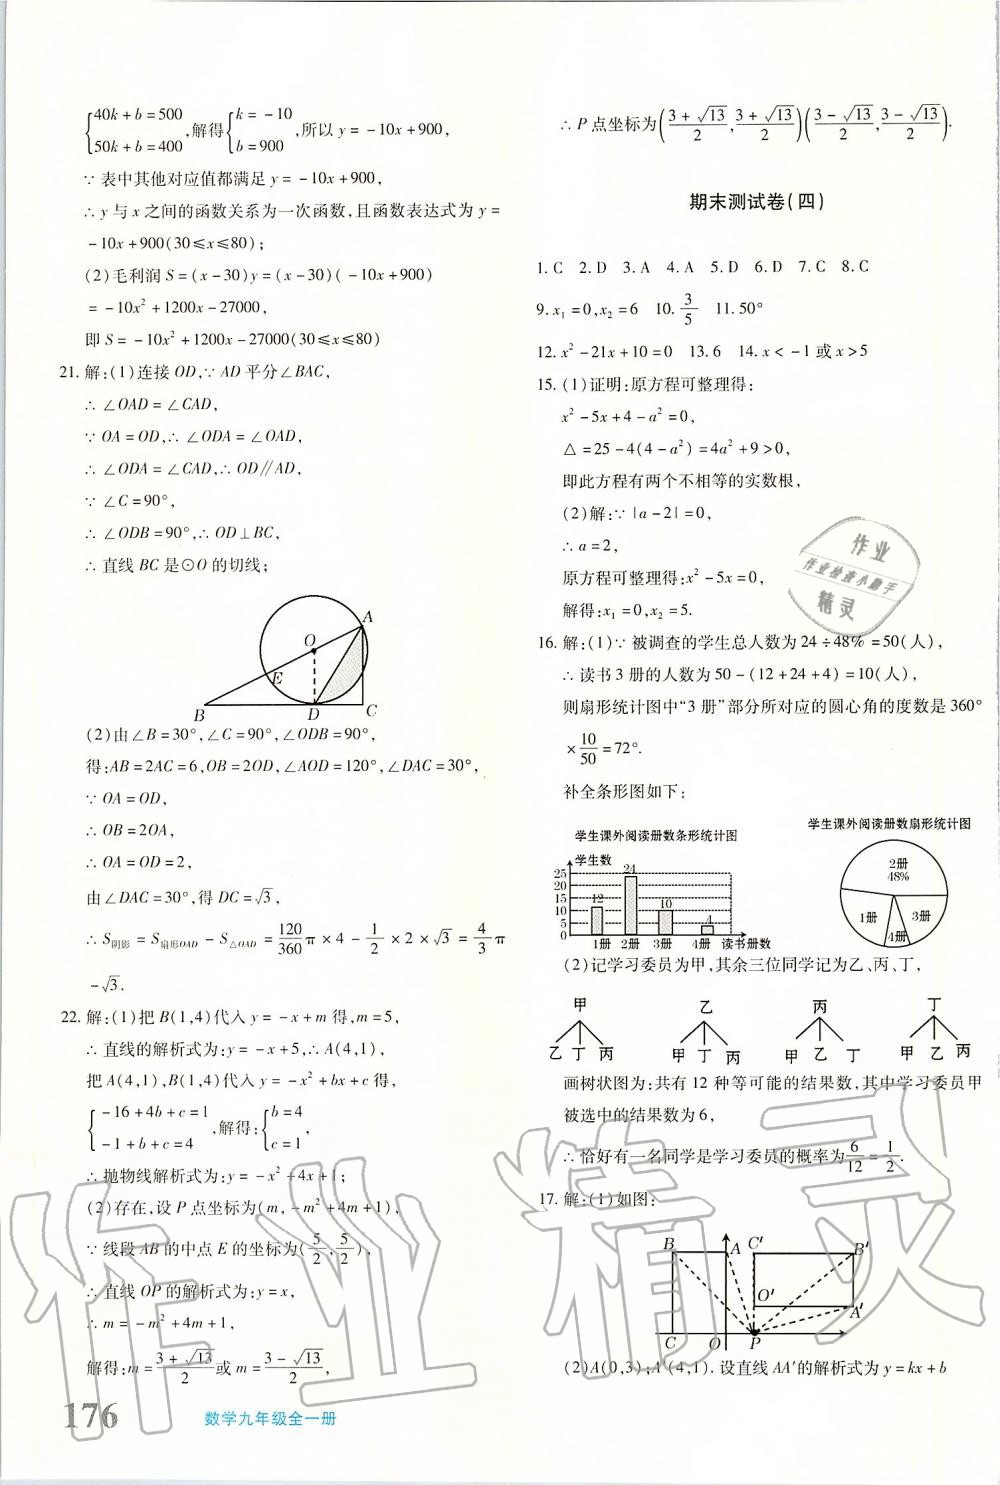 {40k+b=500, 50k+b=400 ,解得{k=-10, b=900 ,所以y=-10x+900,
∵表中其他对应值都满足y=-10x+900,
∴y与x之间的函数关系为一次函数,且函数表达式为y=
-10x+900(30≤x≤80);
(2)毛利润S=(x-30)y=(x-30)(-10x+900)
=-10x²+1200x-27000,
即S=-10x²+1200x-27000(30≤x≤80)
21.解:(1)连接OD,∵AD平分∠BAC,
∴∠OAD=∠CAD,
∵OA=OD,∴∠ODA=∠OAD,
∴∠ODA=∠CAD,∴OD∥AD,
∵∠C=90°,
∴∠ODB=90°,∴OD⊥BC,
∴直线BC是⊙O的切线;
A
O
E
B D C
(2)由∠B=30°,∠C=90°,∠ODB=90°,
得:AB=2AC=6,OB=2OD,∠AOD=120°,∠DAC=30°,
∵OA=OD,
∴OB=2OA,
∴OA=OD=2,
由∠DAC=30°,得DC=√3,
∴S阴影=S扇形OAD-S△OAD=120/360π×4-1/2×2×√3=4/3π
-√3.
22.解:(1)把B(1,4)代入y=-x+m得,m=5,
∴直线的解析式为:y=-x+5,∴A(4,1),
把A(4,1),B(1,4)代入y=-x²+bx+c得,
{-16+4b+c=1, -1+b+c=4 ,解得:{b=4, c=1 ,
∴抛物线解析式为:y=-x²+4x+1;
(2)存在,设P点坐标为(m,-m²+4m+1),
∵线段AB的中点E的坐标为(5/2,5/2),
∴直线OP的解析式为:y=x,
∴m=-m²+4m+1,
解得:m=(3+√13)/2或m=(3-√13)/2,
176
数学九年级全一册
∴P点坐标为((3+√13)/2,(3+√13)/2)((3-√13)/2,(3-√13)/2).
期末测试卷(四)
1.C 2.D 3.A 4.A 5.D 6.D 7.C 8.C
9.x₁=0,x₂=6 10.3/5 11.50°
12.x²-21x+10=0 13.6 14.x<-1或x>5
15.(1)证明:原方程可整理得:
x²-5x+4-a²=0,
△=25-4(4-a²)=4a²+9>0,
即此方程有两个不相等的实数根,
(2)解:∵|a-2|=0,
∴a=2,
原方程可整理得:x²-5x=0,
解得:x₁=0,x₂=5.
作业
作业检查小助手
精灵
16.解:(1)∵被调查的学生总人数为24÷48%=50(人),
∴读书3册的人数为50-(12+24+4)=10(人),
则扇形统计图中“3册”部分所对应的圆心角的度数是360°
×10/50=72°.
补全条形图如下:
学生课外阅读册数条形统计图
学生数
25
20
15
10
5
0
12 24 10 4
1册 2册 3册 4册 读书册数
学生课外阅读册数扇形统计图
2册
48%
1册 3册
4册
(2)记学习委员为甲,其余三位同学记为乙、丙、丁,
甲 乙 丙 丁
乙 丁 丙 甲 丁 丙 甲 乙 丁 甲 乙 丙
画树状图为:共有12种等可能的结果数,其中学习委员甲
被选中的结果数为6,
∴恰好有一名同学是学习委员的概率为6/12=1/2.
17.解:(1)如图:
B A C′ B′
O′ A′
C O P
(2)A(0,3);A′(4,1).设直线AA′的解析式为y=kx+b
作业精灵